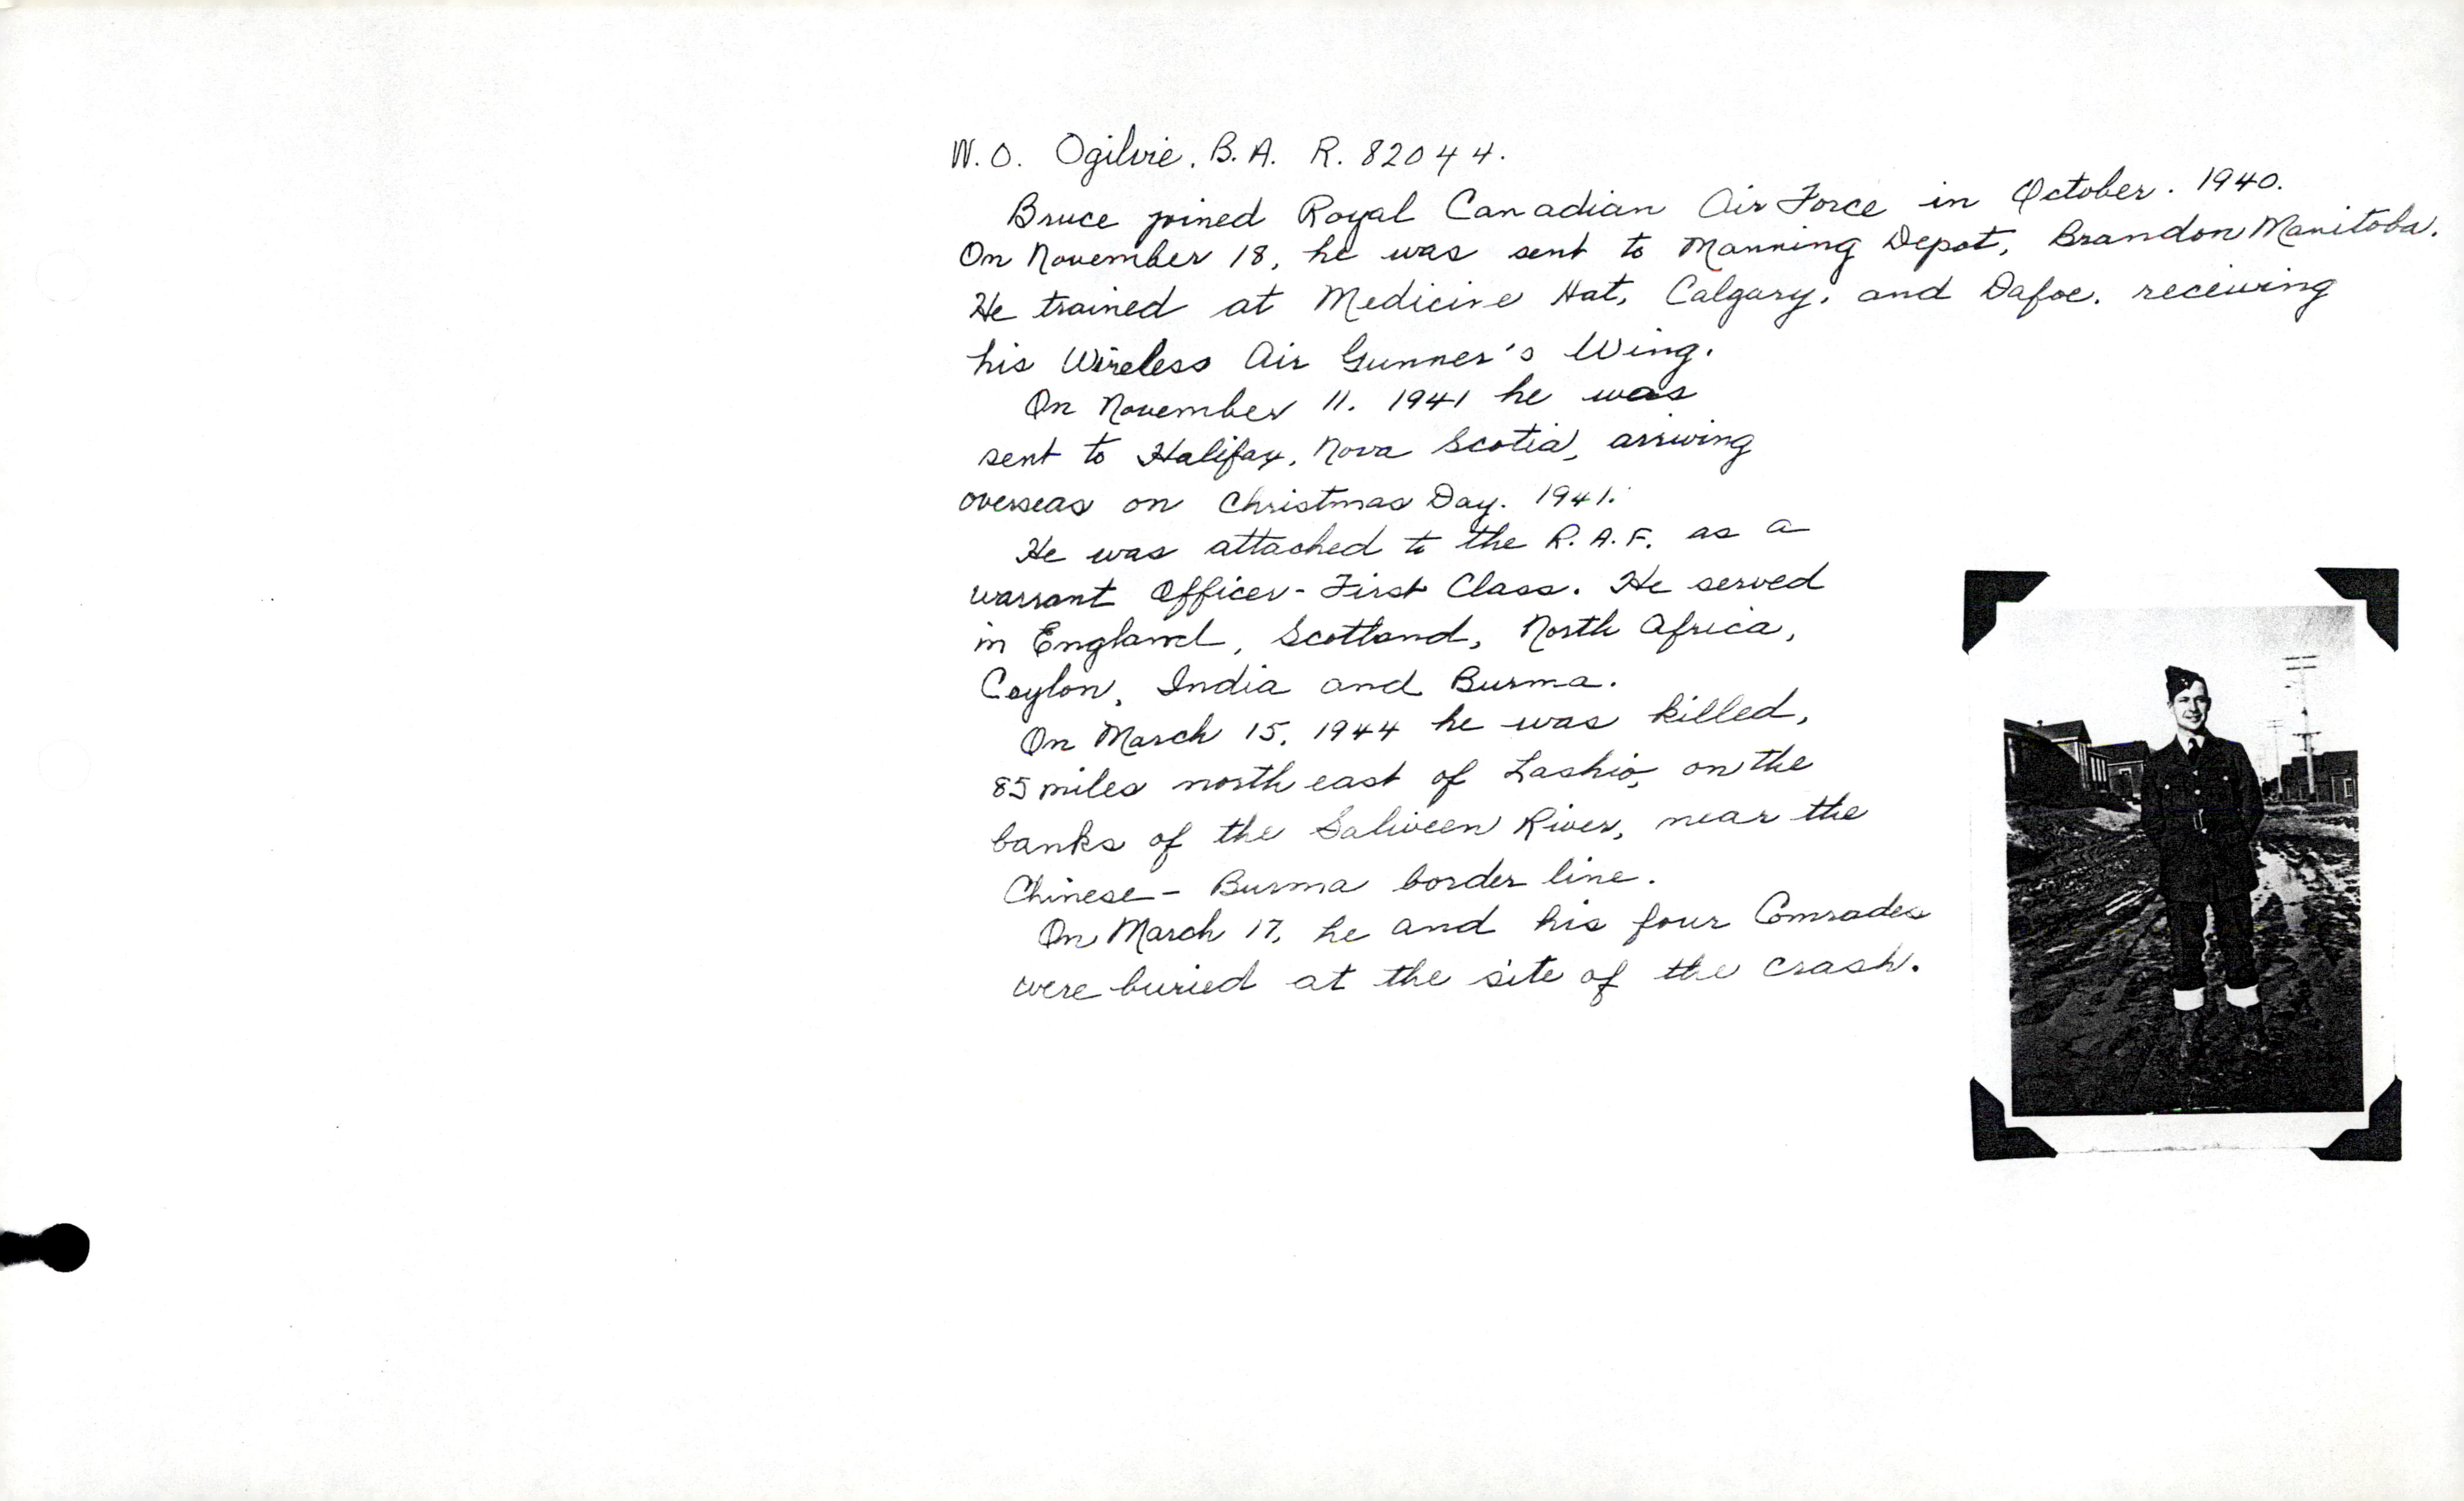 W.O. Ogilvie. B.A. R. 82044.
Bruce joined Royal Canadian Air Force in October. 1940.
On November 18, he was sent to Manning Depot, Brandon Manitoba.
He trained at Medicine Hat, Calgary, and Dafoe. receiving
his Wireless Air Gunner's Wing.
On November 11. 1941 he was
sent to Halifax, Nova Scotia, arriving
overseas on Christmas Day. 1941.
He was attached to the R.A.F. as a
warrant Officer - First Class. He served
in England, Scotland, North Africa,
Ceylon, India and Burma.
On March 15, 1944 he was killed,
85 miles north east of Lashio, on the
banks of the Salween River, near the
Chinese - Burma border line.
On March 17, he and his four Comrades
were buried at the site of the crash.